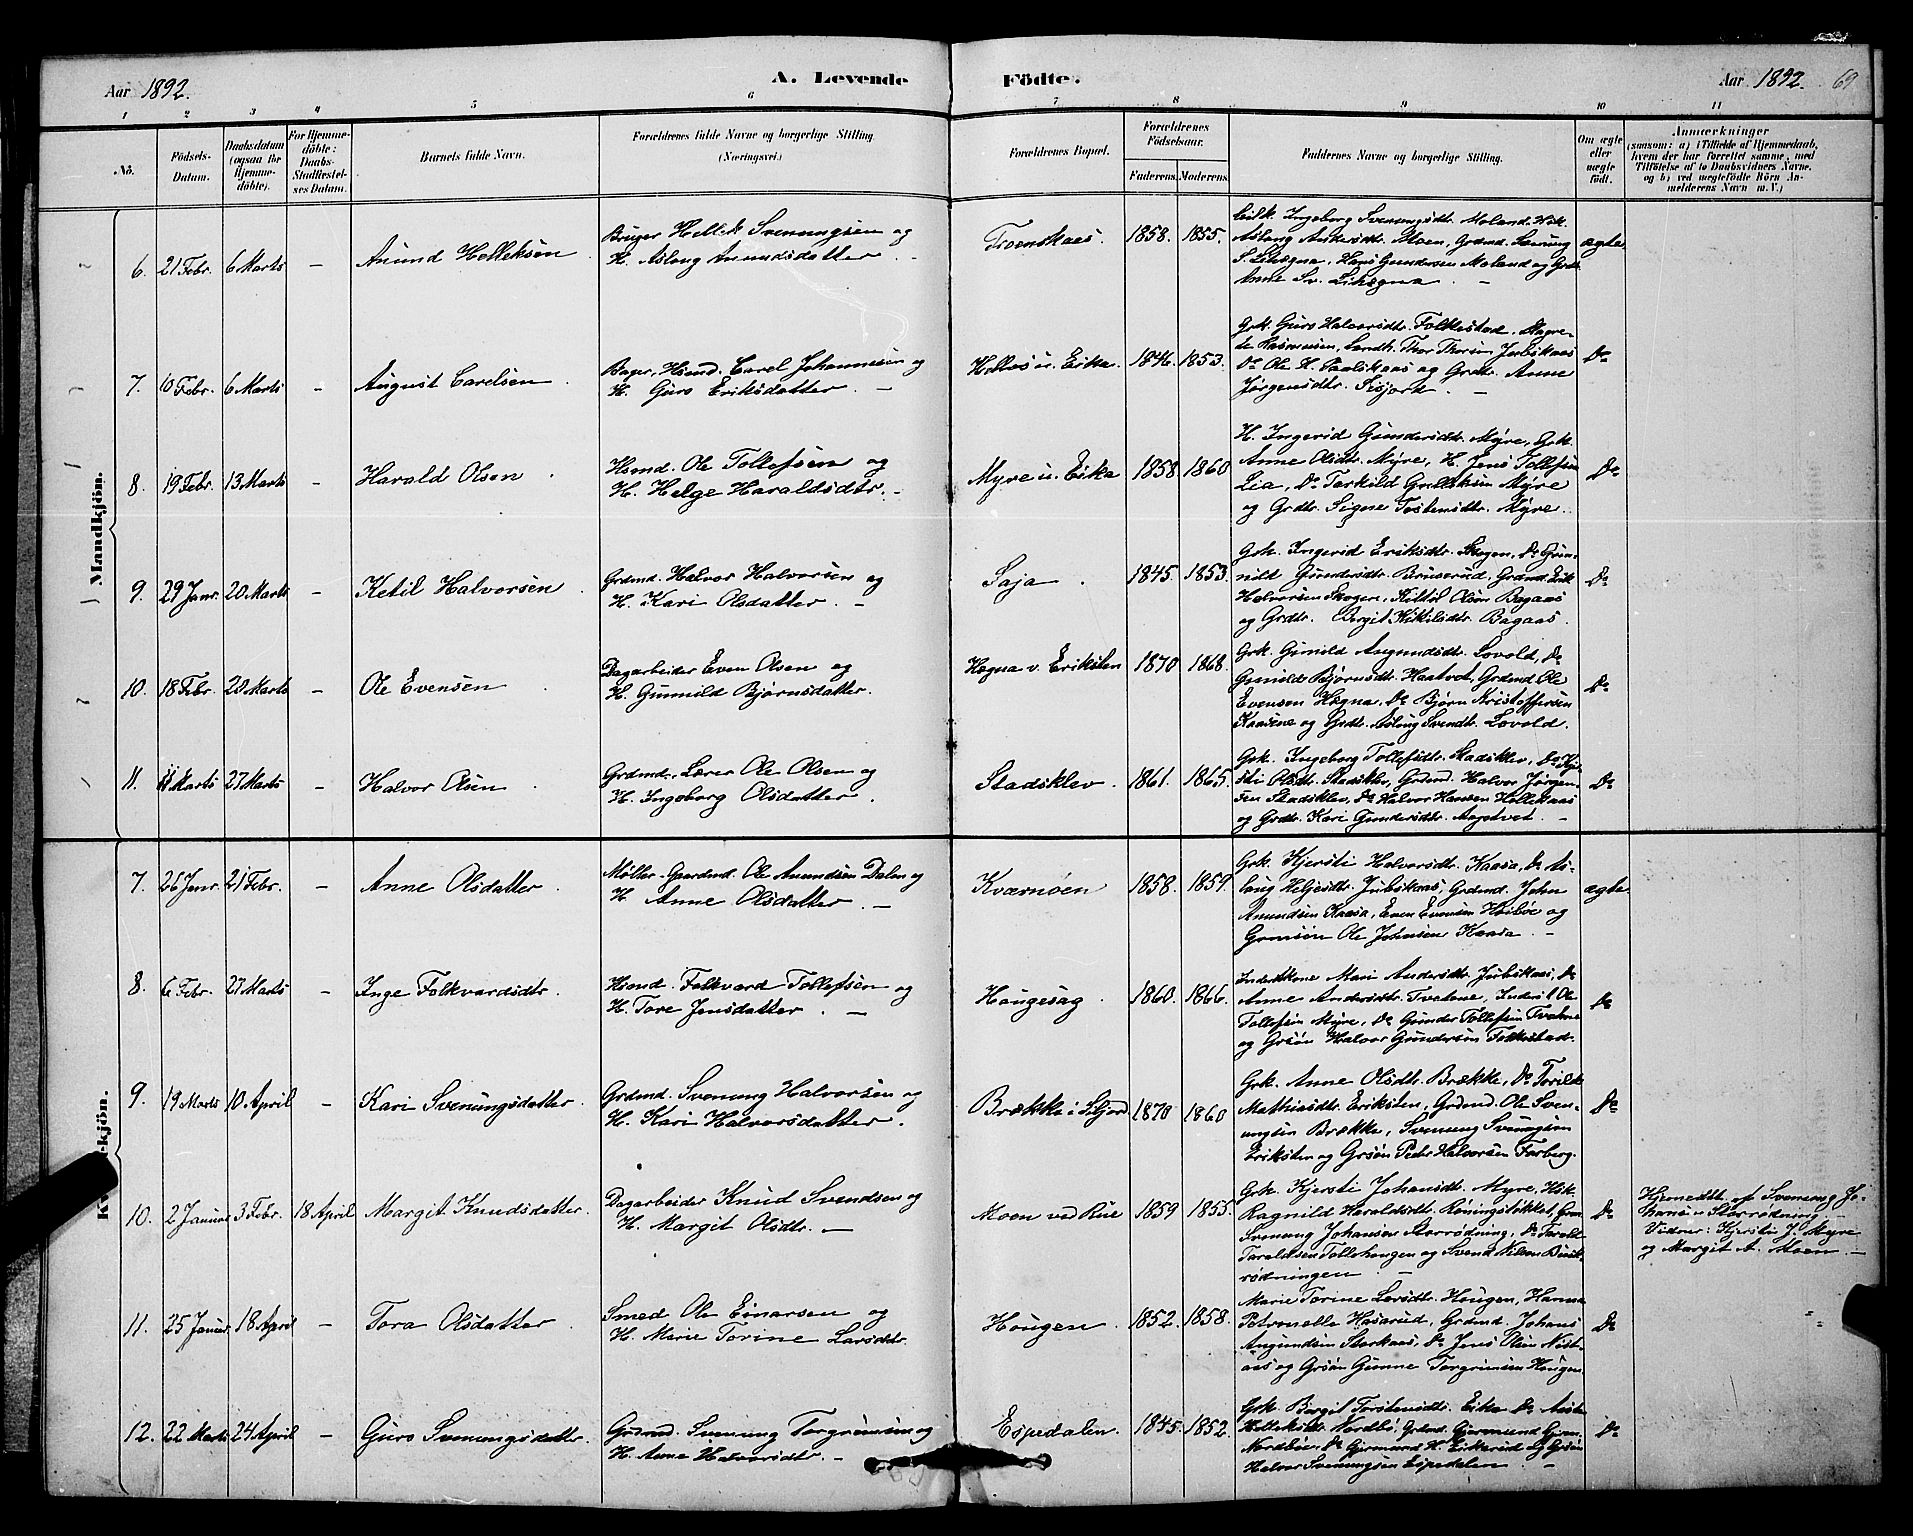 Aar 1892.
A. Levende
Födte.
Aar 1892. 69
1 2 3 4 5 6 7 8 9 10 11
No.
Födsels-
Datum.
Daabsdatum
(ogsaa for
Hjemme-
döbte).
For Hjemme-
döbte:
Daabs-
Stadfæstel-
ses Datum.
Barnets fulde Navn.
Forældrenes fulde Navne og borgerlige Stilling
(Næringsvei.)
Forældrenes Bopæl.
Forældrenes
Födselsaar.
Faderens. Moderens.
Faddernes Navne og borgerlige Stilling.
Om ægte
eller
uægte
födt.
Anmærkninger
(saasom: a) i Tilfælde af Hjemmedaab,
hvem der har forrettet samme, med
Tilföielse af to Daabsvidners Navne,
og b) ved uægtefödte Börn An-
melderens Navn m. V.)
Mandkjön.
6. 21 Febr. 6 Marts – Anund Helleksen
Bruger Hellek Svenungsen og
H. Aslaug Anundsdatter.
Troenskaas. 1858. 1855.
Ingeborg Svenungsdt. Moland, Hsk.
Aslaug Andersdt. Moen, Grdmd.
Hans Gundersen Moland og Grdt.
Anne Sv.
ægte
7. 10 Febr. 6 Marts – August Carelsen
Bager, Hsmd. Carel Johannesen og
H. Guro Eriksdatter. –
Holtas u. Eika. 1846. 1853.
Grk. Guro Halvorsdtr. Folkestad,
Rasmussen, Landh. Thor Thorsen Jubskaas
Do Ole H. Paalskaas og Grdt. Anne
Jørgensdtr. Sisjord. –
Do
8. 19 Febr. 13 Marts – Harald Olsen
Hsmd. Ole Tollefsen og
H. Helge Haraldsdtr. –
Myre u. Eika 1858 1860
H. Ingerid Gundersdtr. Myre, Grk.
Anne Olsdtr. Myre, H. Jens Tollefsen
Lia, Do Tarkild Gulleksen Myre
og Grdtr. Signe Tostensdtr. Myre.
Do
9. 29 Janr. 20 Marts – Ketil Halvorsen
Grdmd. Halvor Halvorsen og
H. Kari Olsdatter. –
Saja. 1845. 1853.
Grk. Ingerid Eriksdtr. Skogen, Do Gun-
nild Gundersdtr. Bruserud, Grdmd. Erik
Halvorsen Skogen, Kittil Olsøn Bagaas
og Grdtr. Bergit Kittilsdtr. Bagaas.
Do
10. 18 Febr. 20 Marts – Ole Evensen
Dagarbeider Even Olsen og
H. Gunnild Bjørnsdatter.
Høgna v. Eriksten 1870 1868.
Grk. Gunild Aagundsdtr. Lovold, Do
Gunild Bjørnsdtr. Haatvet, Grdmd Ole
Evensen Høgna, Do Bjørn Kristoffersen
Kaasene og Grdtr. Aslaug Svendtr. Lovold.
Do
11. 11 Marts 27 Marts – Halvor Olsen
Grdmd., Lærer Ole Olsen og
H. Ingeborg Olsdatter.
Stadsklev. 1861. 1865.
Grk. Ingeborg Tollefsdtr. Stadsklev, Do Kjer-
sti Olsdtr. Stadsklev, Grdmd. Halvor Jørgen-
sen Stadsklev, Do Halvor Hansen Hollekaas
og Grdtr. Kari Gundersdtr. Aagetvet. –
Do
7. 26 Janr. 21 Febr. – Anne Olsdatter
Møller-Gaardmd. Ole Anundsen Dalen og
H. Anne Olsdatter. –
Kværnøen 1858. 1859.
Grk. Kjersti Halvorsdt. Kaasa, Do As-
laug Helgesdtr. Jubskaas, Grdmd. John
Anundsen Kaasa, Even Evensen Heibøe og
Grmsøn Ole Johnsen Kaasa. –
ægte.
8. 6 Febr. 27 Marts – Inge Folkvardsdtr.
Hsmd. Folkvard Tollefsen og
H. Tore Jensdatter. –
Hougesag. 1860. 1866.
Inderstkone Mari Andersdtr. Jubskaas, Do
Anne Andersdtr. Tvetene, Inderst Ole
Tollefsen Myre, Do Gunder Tollefsen Tvetene
og Grsøn Halvor Gundersen Folkestad.
Do
9. 19 Marts 10 April – Kari Svenungsdatter.
Grdmd. Svenung Halvorsen og
H. Kari Halvorsdatter.
Brække i Sljord 1870 1860
Grk. Anne Olsdtr. Brække, Do Torild
Mathiasdtr. Eriksten, Grdmd. Ole Sven-
ungsen Brække, Svenung Svenungsen
Eriksten og Grsøn Peder Halvorsen Forberg.
Do
10. 2 Januar 3 Febr. 18 April Margit Knudsdatter.
Dagarbeider Knud Svendsen og
H. Margit Olsdt. –
Moen ved Rue 1859 1855.
Grk. Kjersti Johansdt. Myre, Hsk.
Ragnild Haraldsdt. Røningstikket,
Svenung Johansen Storrødning, Do Tarald
Taraldsen Tollehaugen og Svend Nilsen
rødningen –
Do
Hjemedt. af Svenung Jo-
hansen Storrødning –
Vidner: Kjersti J. Myre
og Margit A. Moen –
11. 25 Januar 18 April – Tora Olsdatter
Smed Ole Einarsen og
H. Marie Torine Larsdtr.
Hougen. 1852. 1858.
Marie Torine Larsdt. Hougen, Hanna
Petronelle Haserud, Grdmd. Johans
Aagundsen Storkaas, Do Jens Olsen
og Grsøn Gunne Torgrimsen Hougen
Do
12. 22 Marts 24 April – Guro Svenungsdatter.
Grdmd. Svenung Torgrimsen og
H. Anne Halvorsdtr. –
Espedalen. 1845. 1852.
Grk. Bergit Torstensdtr. Eika, Do
Helleksdt. Nordbø, Grdmd. Gjermund
Nordbøe, Do Gjermund H. Eikerud og Grsøn
Halvor Svenungsen Espedalen. –
Do